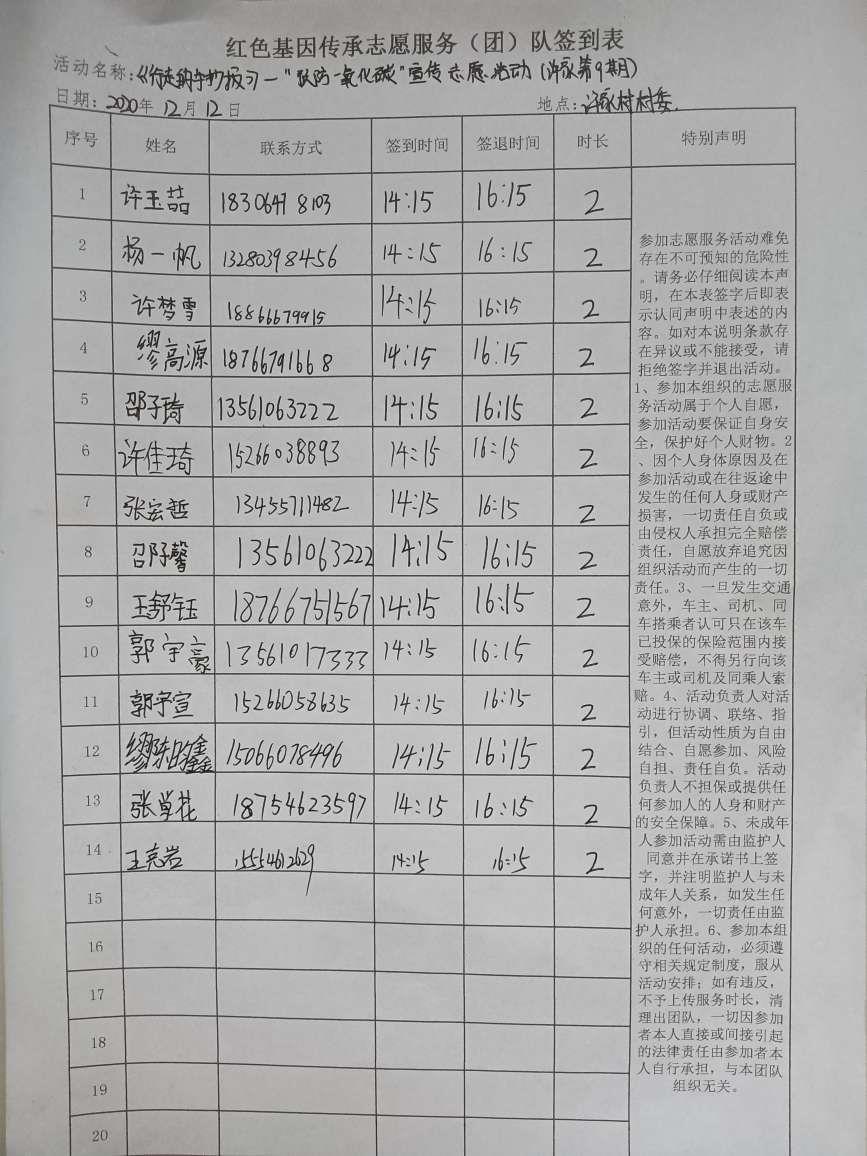 红色基因传承志愿服务（团）队签到表
活动名称：《行走的手抄报》一"预防一氧化碳"宣传志愿活动（许家第9期）
日期：2020年12月12日 地点：许家村村委.
序号 姓名 联系方式 签到时间 签退时间 时长 特别声明
1 许玉喆 18306478103 14:15 16:15 2
2 杨一帆 13280398456 14:15 16:15 2
3 许梦雪 18866679915 14:15 16:15 2
4 缪高源 18766791668 14:15 16:15 2
5 邵子琦 13561063222 14:15 16:15 2
6 许佳琦 15266038893 14:15 16:15 2
7 张宏哲 13455711482 14:15 16:15 2
8 邵子馨 13561063222 14:15 16:15 2
9 王舒钰 18766751567 14:15 16:15 2
10 郭宇豪 13561017333 14:15 16:15 2
11 郭宇宣 15266058635 14:15 16:15 2
12 缪陈昀鑫 15066078496 14:15 16:15 2
13 张学花 18754623597 14:15 16:15 2
14 王亮岩 15554612629 14:15 16:15 2
15
16
17
18
19
20
参加志愿服务活动难免
存在不可预知的危险性
。请务必仔细阅读本声
明，在本表签字后即表
示认同声明中表述的内
容。如对本说明条款存
在异议或不能接受，请
拒绝签字并退出活动。
1、参加本组织的志愿服
务活动属于个人自愿，
参加活动要保证自身安
全，保护好个人财物。2
、因个人身体原因及在
参加活动或在往返途中
发生的任何人身或财产
损害，一切责任自负或
由侵权人承担完全赔偿
责任，自愿放弃追究因
组织活动而产生的一切
责任。3、一旦发生交通
意外，车主、司机、同
车搭乘者认可只在该车
已投保的保险范围内接
受赔偿，不得另行向该
车主或司机及同乘人索
赔。4、活动负责人对活
动进行协调、联络、指
引，但活动性质为自由
结合、自愿参加、风险
自担、责任自负。活动
负责人不担保或提供任
何参加人的人身和财产
的安全保障。5、未成年
人参加活动需由监护人
同意并在承诺书上签
字，并注明监护人与未
成年人关系，如发生任
何意外，一切责任由监
护人承担。6、参加本组
织的任何活动，必须遵
守相关规定制度，服从
活动安排；如有违反，
不予上传服务时长，清
理出团队，一切因参加
者本人直接或间接引起
的法律责任由参加者本
人自行承担，与本团队
组织无关。